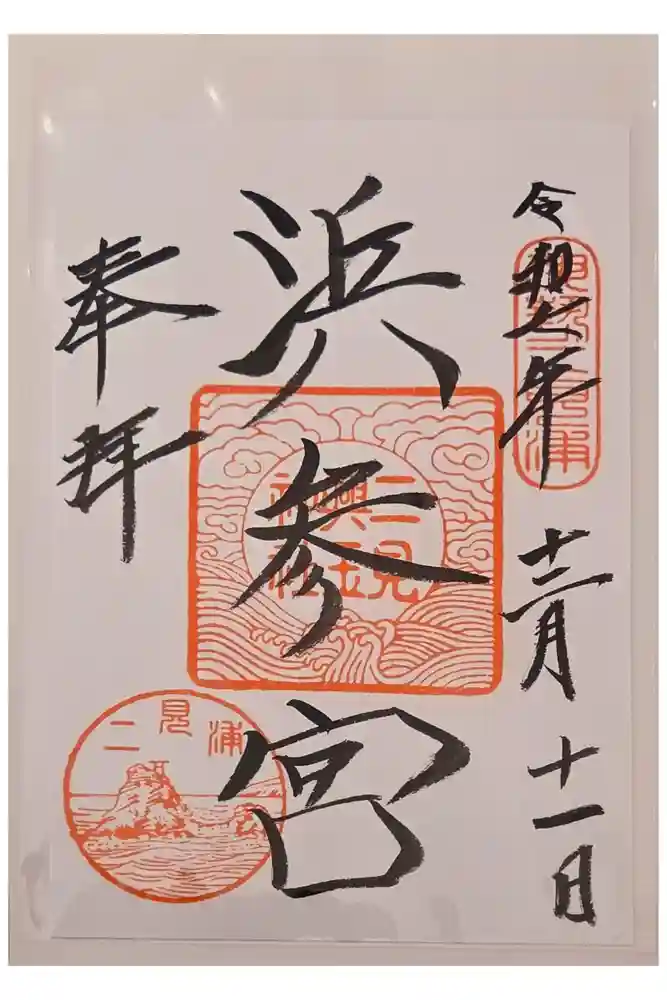 令和七年十二月十一日
伊勢二見浦
浜参宮
二見
興玉
神社
奉拝
二見浦